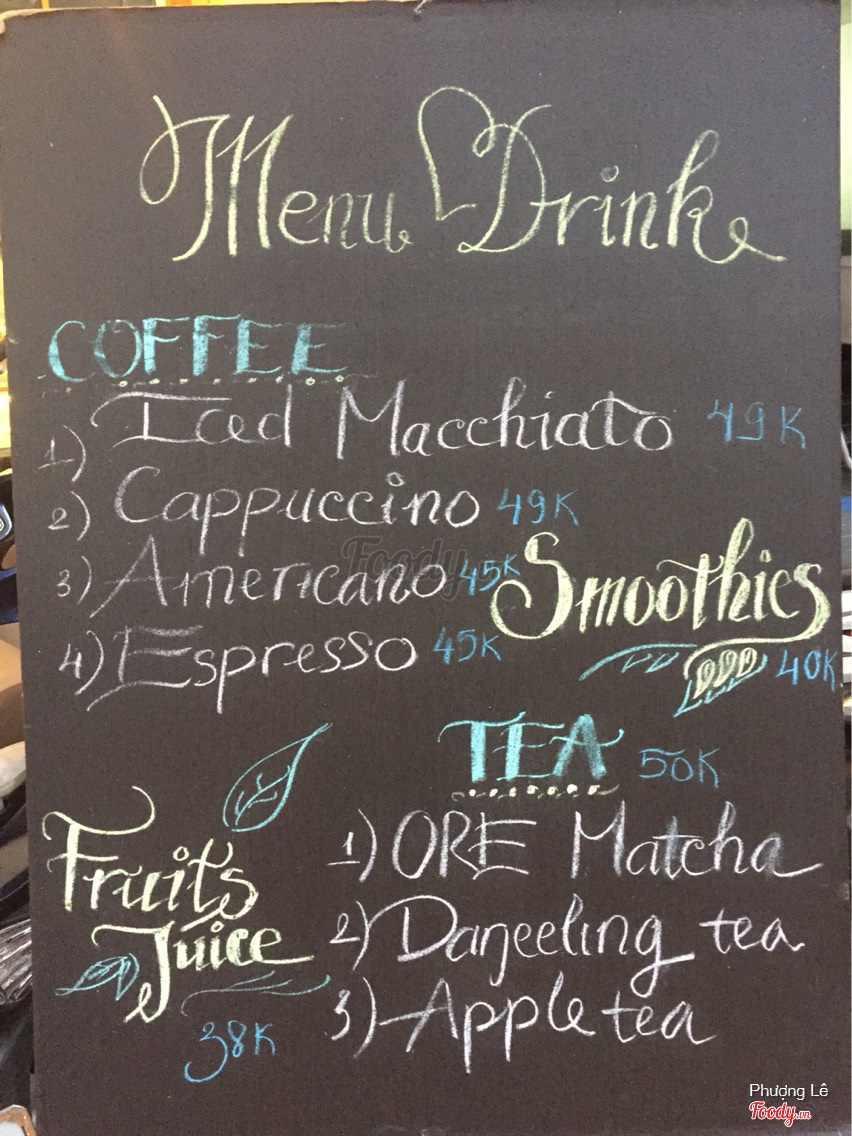 Menu Drink
COFFEE
1) Iced Macchiato 49K
2) Cappuccino 49K
3) Americano 45K
4) Espresso 45K
Smoothies
40K
TEA 50K
1) ORE Matcha
2) Darjeeling tea
3) Apple tea
Fruits
Juice
38K
Foody
Phượng Lê
Foody.vn